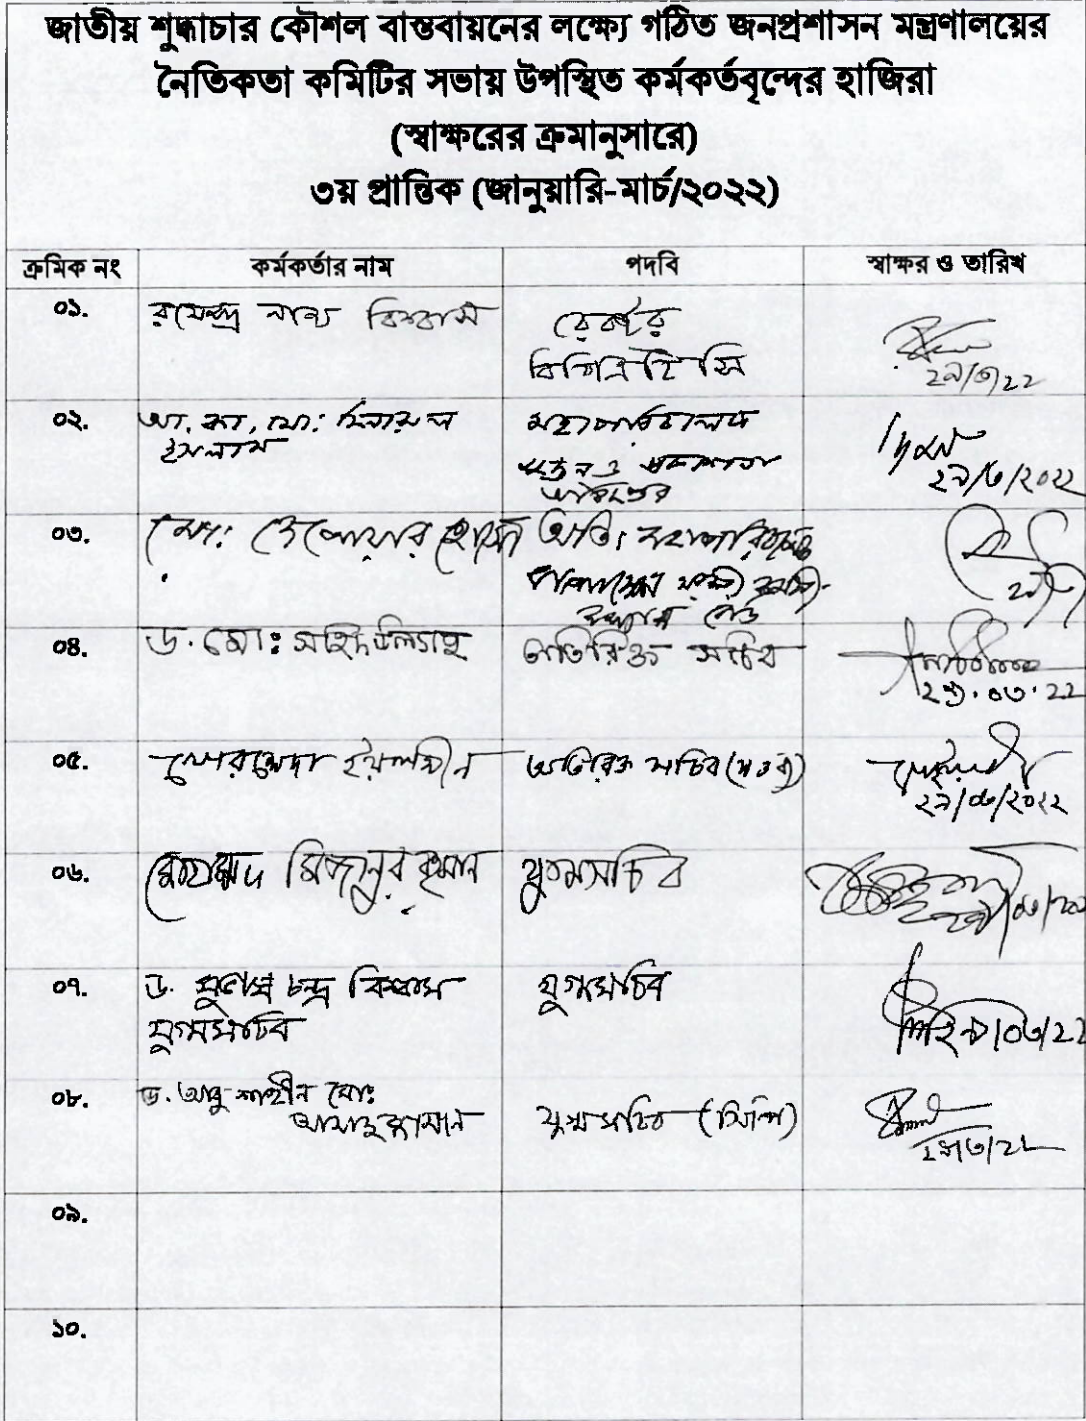 জাতীয় শুদ্ধাচার কৌশল বাস্তবায়নের লক্ষ্যে গঠিত জনপ্রশাসন মন্ত্রণালয়ের
নৈতিকতা কমিটির সভায় উপস্থিত কর্মকর্তবৃন্দের হাজিরা
(স্বাক্ষরের ক্রমানুসারে)
৩য় প্রান্তিক (জানুয়ারি-মার্চ/২০২২)
ক্রমিক নং কর্মকর্তার নাম পদবি স্বাক্ষর ও তারিখ
০১. রমেন্দ্র নাথ বিশ্বাস রেক্টর
বিপিএটিসি
২৯/৩/২২
০২. মোঃ মহাপরিচালক
ইসলাম
মুদ্রণ ও প্রকাশনা
অধিদপ্তর
২৯/৩/২০২২
০৩. মোঃ দেলোয়ার হোসেন অতিঃ মহাপরিচালক
০৪. ড. মোঃ সহিদউল্যাহ অতিরিক্ত সচিব
২৯.০৩.২২
০৫. ইয়াসমীন অতিরিক্ত সচিব
২৯/০৩/২০২২
০৬. মোহাম্মদ মিজানুর রহমান যুগ্মসচিব
০৭. ড. চন্দ্র বিশ্বাস যুগ্মসচিব
যুগ্মসচিব
০৩/২২
০৮. ড. আবু শাহীন মোঃ
আসাদুজ্জামান যুগ্মসচিব (সিপি)
২৯/৩/২২
০৯.
১০.